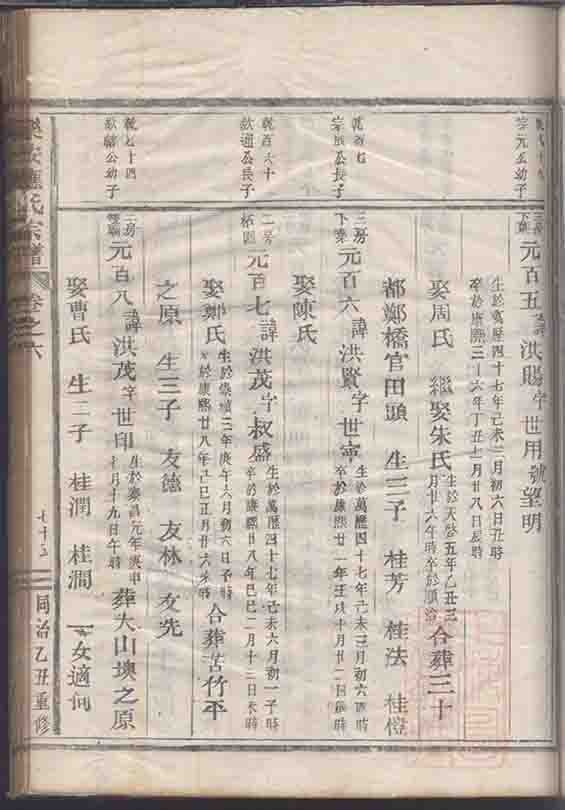 宗元公幼子
三房下宅
元百五諱洪賜字世用號望明
生於萬歷四十七年己未三月初六日丑時
卒於康熙三十六年丁丑七月廿八日辰時
娶周氏 繼娶朱氏
生於天啓五年乙丑三
月廿六午時卒於順治
合葬三十
都鄭橋官田頭 生三子 桂芳 桂法 桂燈
乾百七
宗 公長子
三房下宅
元百六諱洪賢字世寧
生於萬歷四十七年己未三月初六酉時
卒於康熙廿一年壬戌十月廿二日 時
娶陳氏
乾百六十
欽通公長子
二房
元百七諱洪茂字叔盛
生於萬歷四十七年己未六月初一子時
卒於康熙廿八年己巳二月十二日未時
娶鄭氏
生於崇禎三年庚午六月初六日子時
卒於康熙廿八年己巳正月廿六 時
合葬苦竹平
之原 生三子 友德 友林 友先
乾七十四
欽轄公幼子
三房
元百八諱洪茂字世印
生於泰昌元年庚申
十月十九日午時
葬大山塽之原
娶曹氏 生二子 桂潤 桂澗 一女適何
氏宗譜 卷之六 七十三 同治乙丑重修